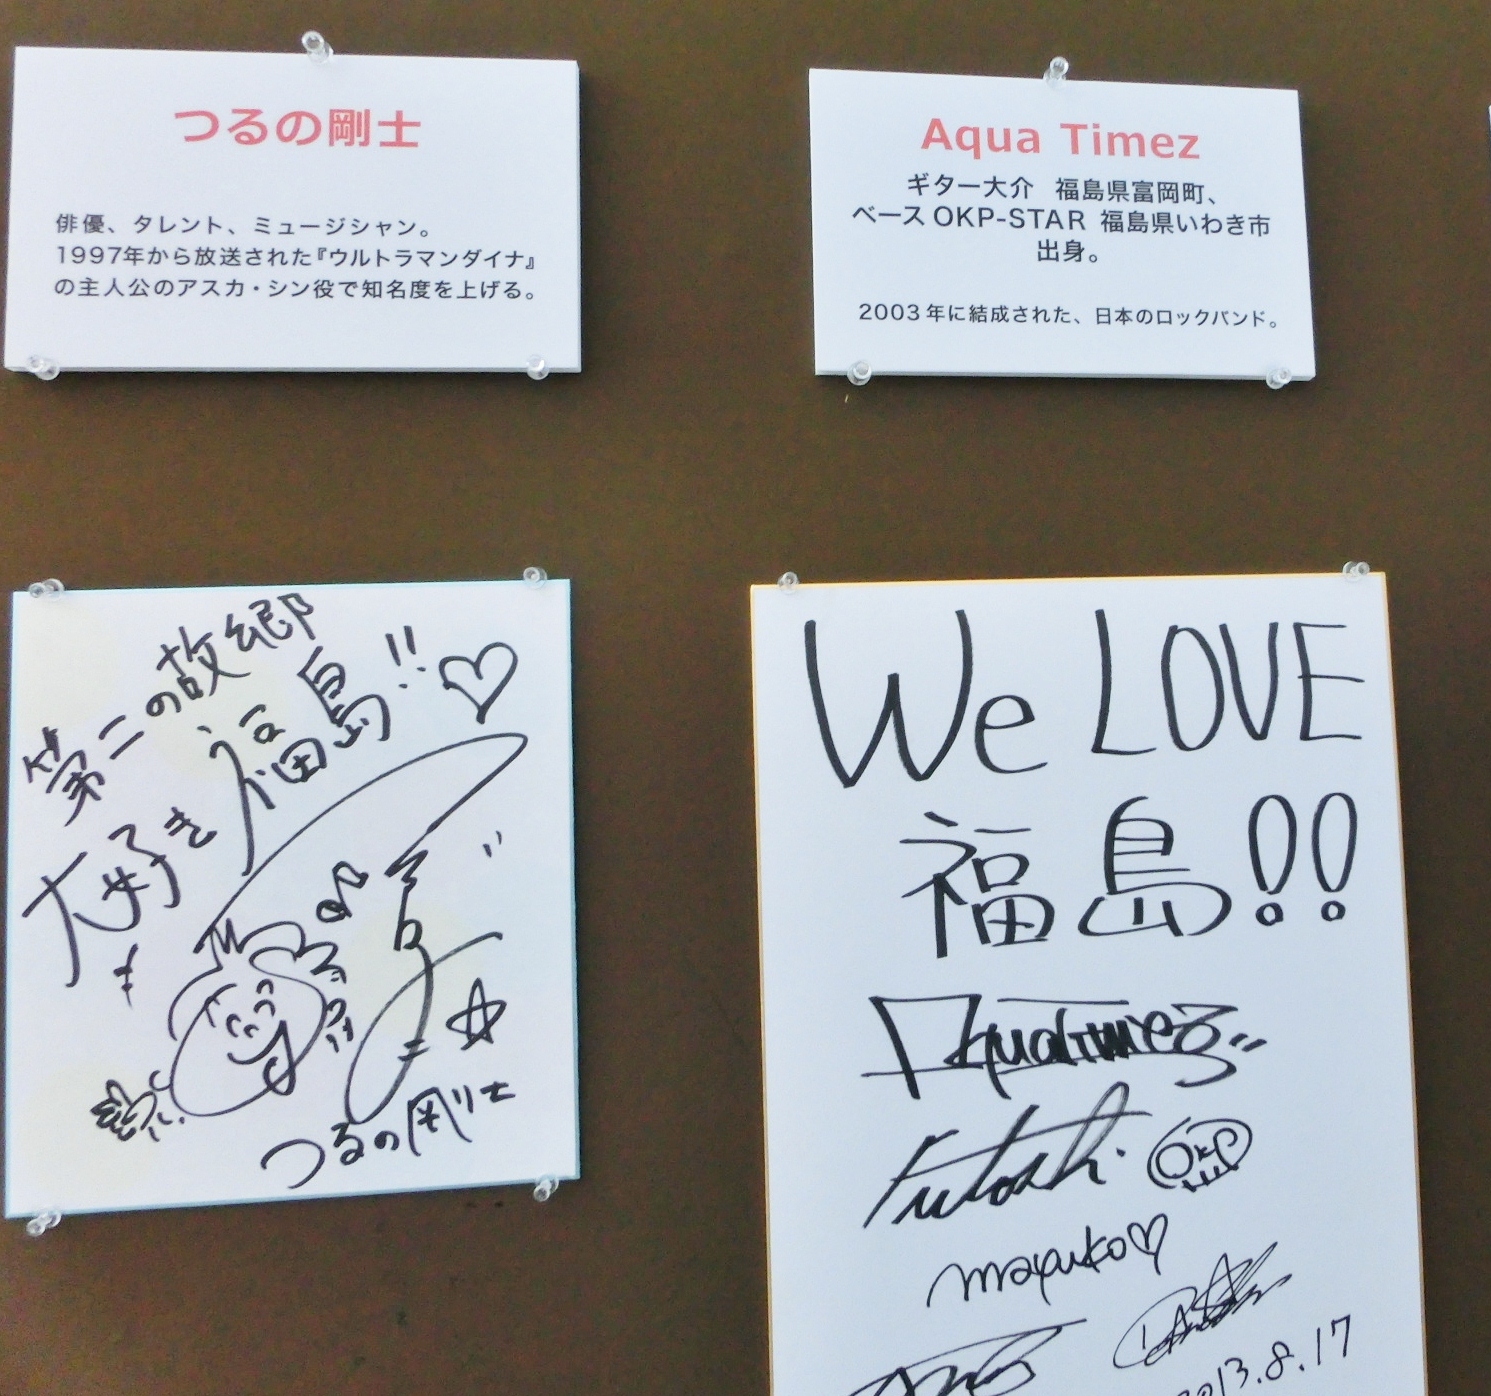 つるの剛士
俳優、タレント、ミュージシャン。
1997年から放送された『ウルトラマンダイナ』
の主人公のアスカ・シン役で知名度を上げる。
Aqua Timez
ギター大介 福島県富岡町、
ベース OKP-STAR 福島県いわき市
出身。
2003年に結成された、日本のロックバンド。
第二の故郷
大好き 福島!!♡
つるの剛士
We LOVE
福島!!
Aqua Timez
Futoshi
OKP
mayuko♡
2013.8.17